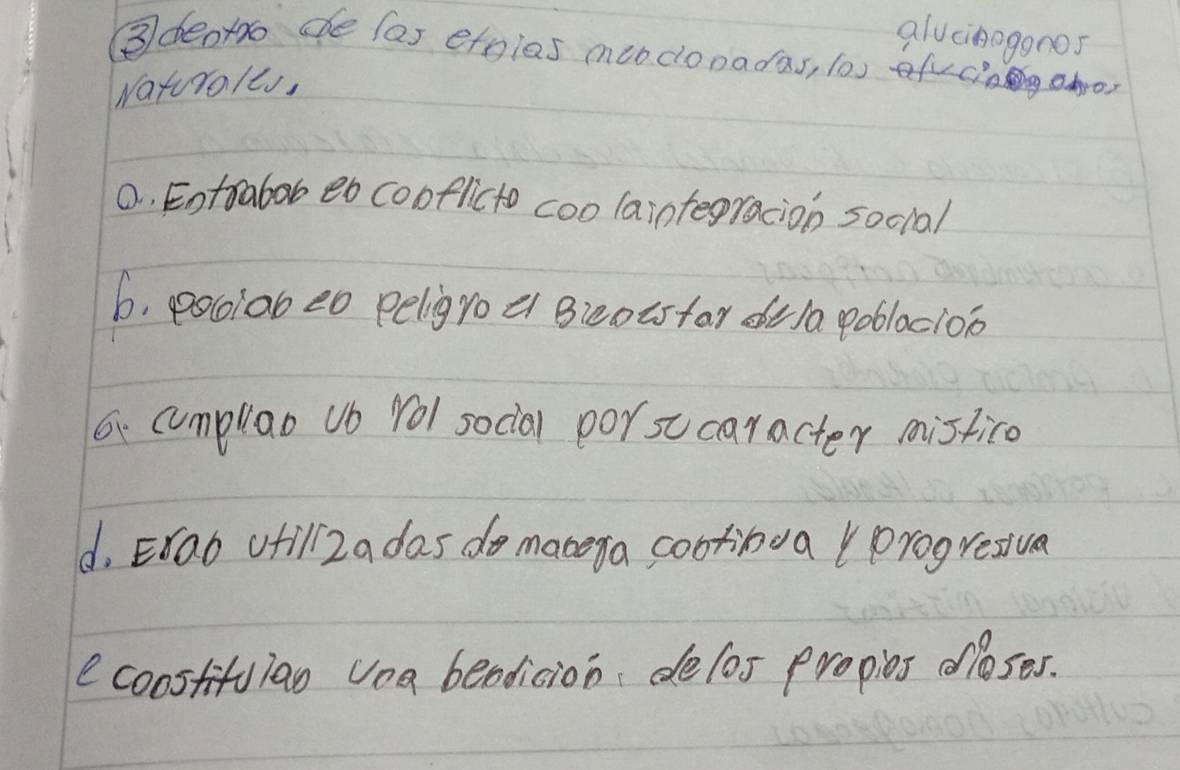 ③ dentro de las etnias mencionadas, los alucinogonos
Naturales.
a. Entraban en conflicto con la integración social
b. ponian en peligro el Bienestar de la población
c. cumplian un rol social por su caracter mistico
d. Eran utilizadas de manera continua y progresiva
e constituian una bendición. de los propios dioses.